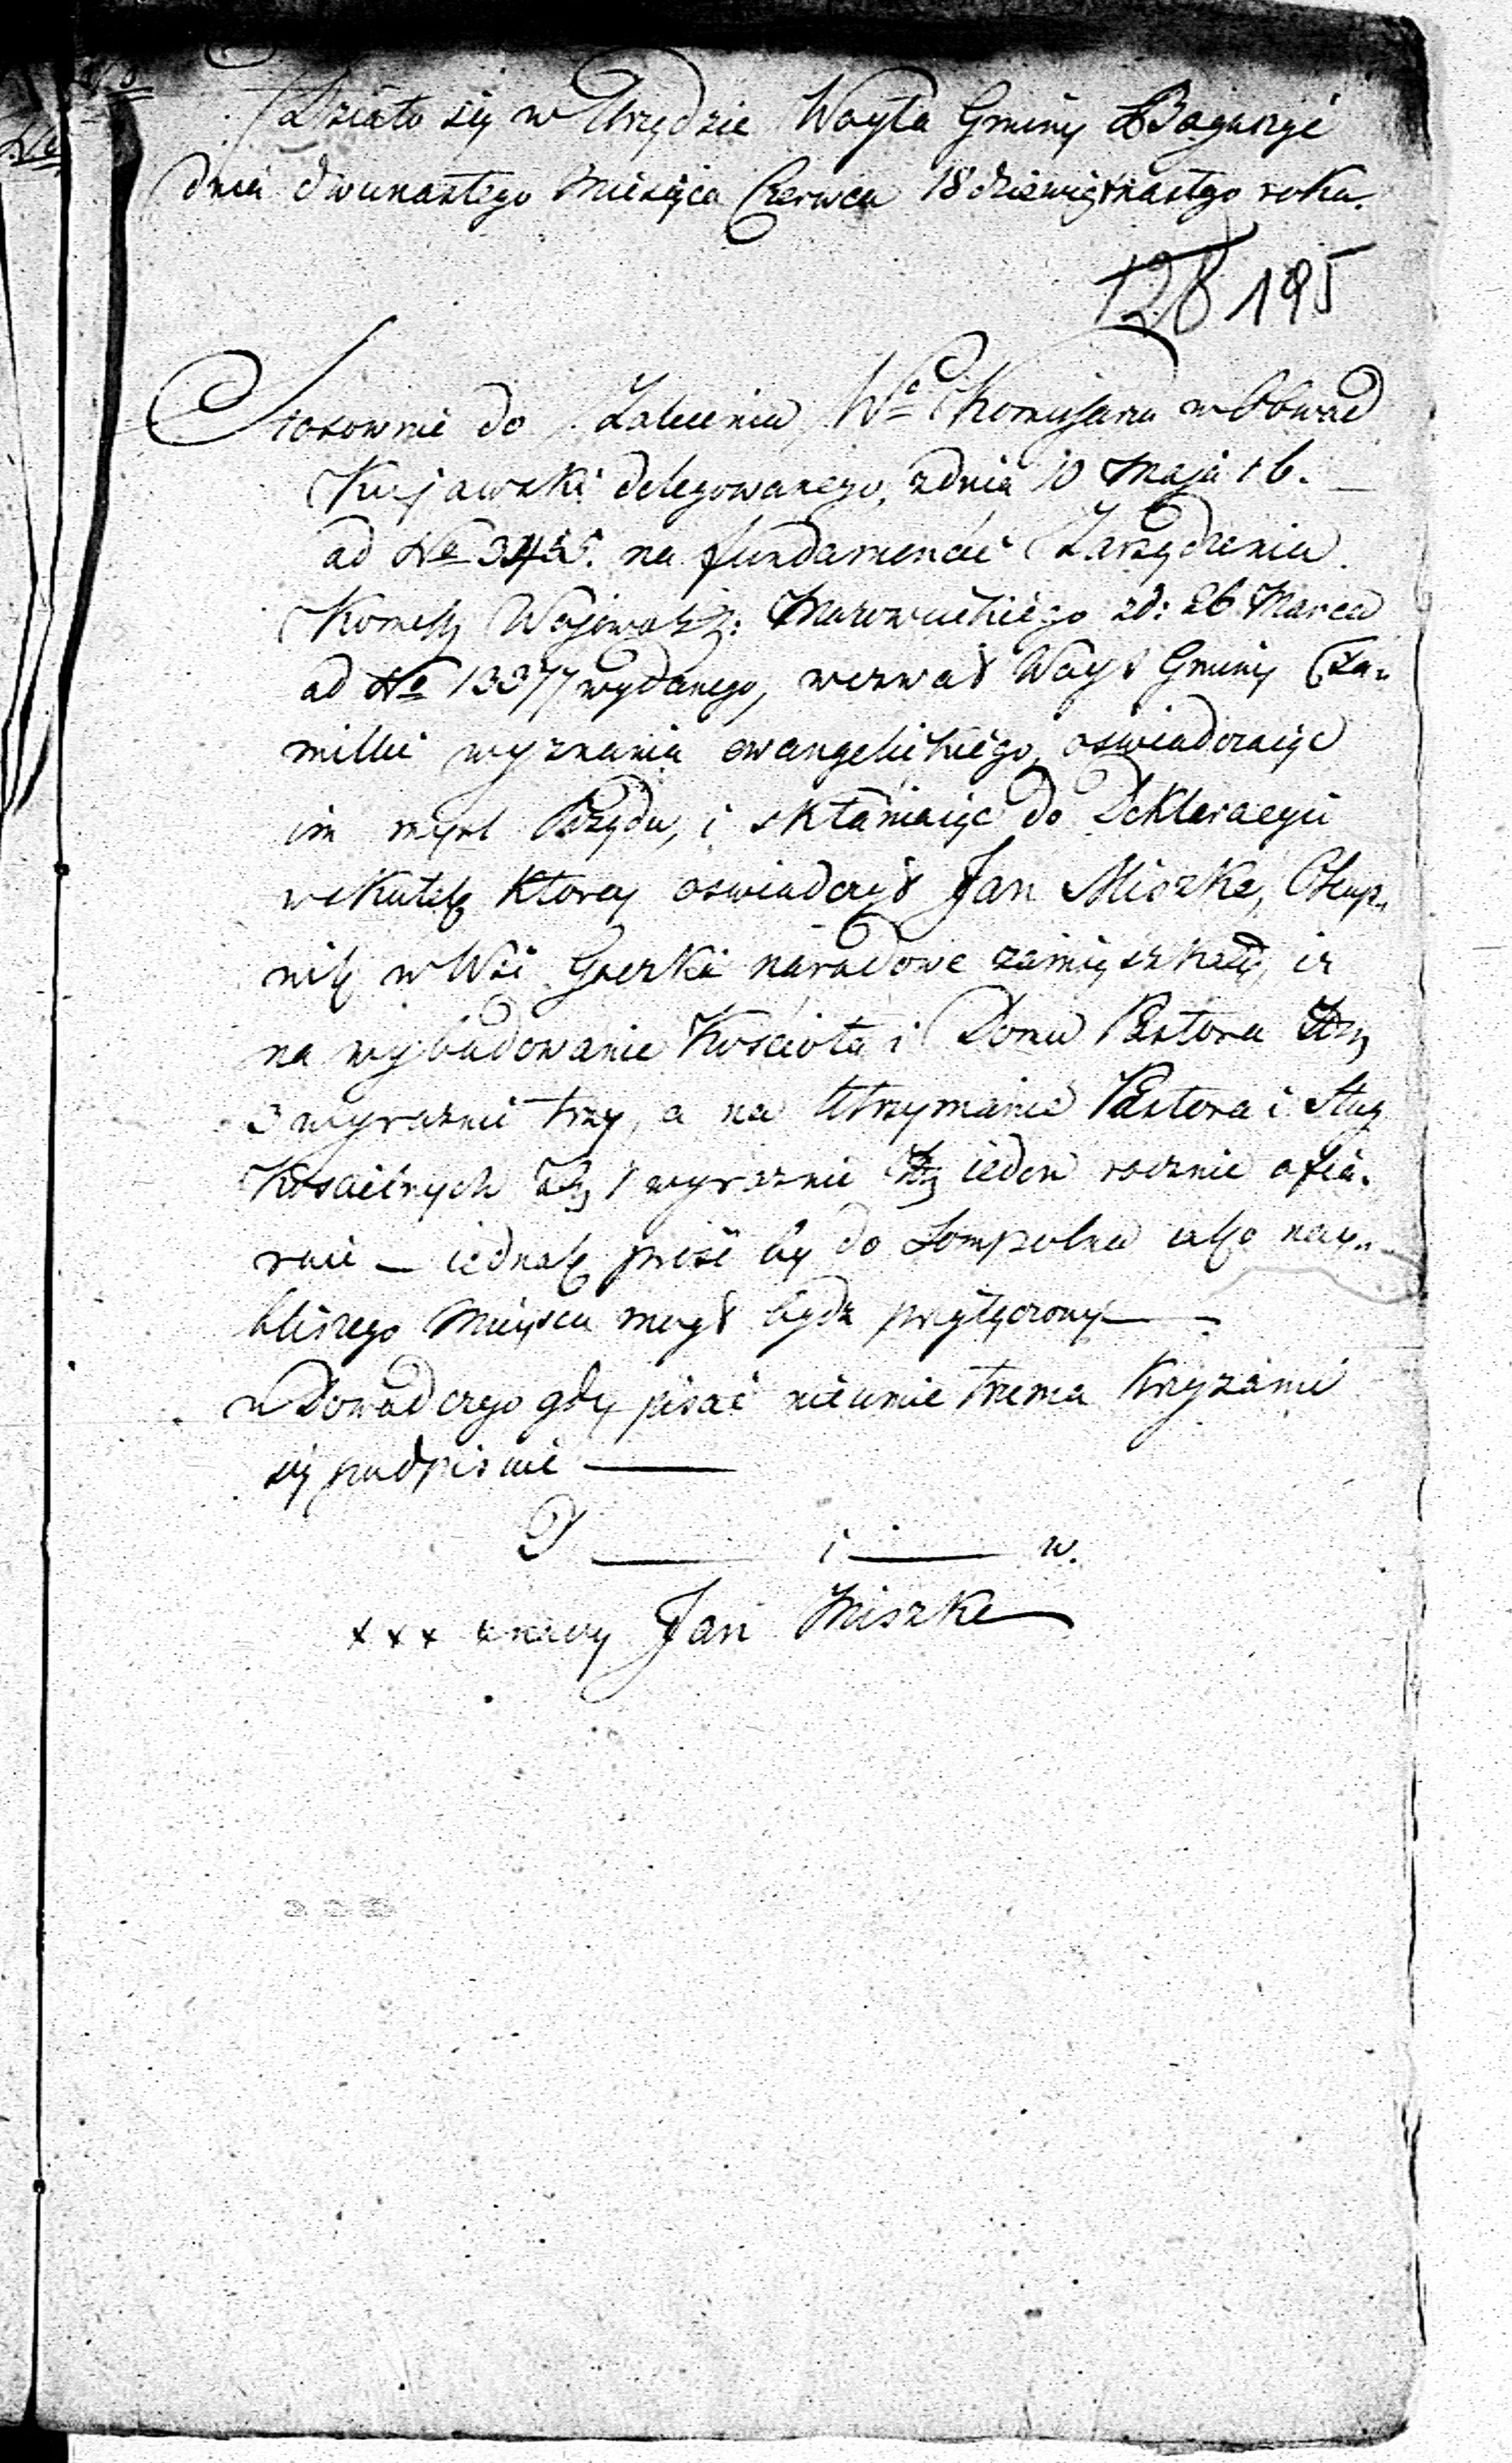 Działo się w Urzędzie Woyta Gminy
dnia dwunastego Miesiąca Czerwca 18 dziewiętnastego roku.
128 195
Stosownie do Zalecenia We Komissarza w Obwod
Kujawski delegowanego, z dnia 10 Maja r b. —
ad No 3245. na fundamencie Zarządzenia
Komissy Wojewodz: Mazowieckiego zd: 26 Marca
ad No 13377 wydanego, wezwał Woyt Gminy Fa„
milie wyznania ewangelickiego, oswiadczaiąc
im mysl Rządu, i skłaniaiąc do Deklaracyii
w skutek ktorey oswiadczył Jan Miszke, Okup„
nik w Wsi narodowe zamięszkały, iz
na wybudowanie Kościoła i Domu Pastora Złt
3 wyraznie trzy, a na Utrzymanie Pastora i Sług
Kościelnych Złt 1 wyraznie Złt ieden rocznie ofia„
ruie — iednak prosi by do Sompolna iako nay„
bliszego Mieysca mogł bydz przyłączony — .
w Dowod czego gdy pisać nieumie trzema Krzyzami
się podpisuie —
P — i — w.
x x x znaczy Jan Miszke